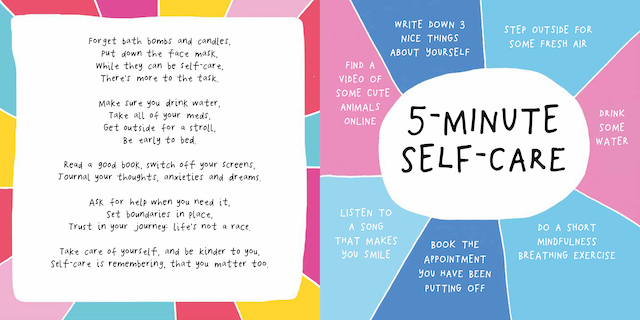 Forget bath bombs and candles,
Put down the face mask,
While they can be self-care,
There's more to the task.
Make sure you drink water,
Take all of your meds,
Get outside for a stroll,
Be early to bed.
Read a good book, switch off your screens,
Journal your thoughts, anxieties and dreams.
Ask for help when you need it,
Set boundaries in place,
Trust in your journey: life's not a race.
Take care of yourself, and be kinder to you,
Self-care is remembering, that you matter too.
WRITE DOWN 3
NICE THINGS
ABOUT YOURSELF
STEP OUTSIDE FOR
SOME FRESH AIR
FIND A
VIDEO OF
SOME CUTE
ANIMALS
ONLINE
5-MINUTE
SELF-CARE
DRINK
SOME
WATER
LISTEN TO
A SONG
THAT MAKES
YOU SMILE
BOOK THE
APPOINTMENT
YOU HAVE BEEN
PUTTING OFF
DO A SHORT
MINDFULNESS
BREATHING EXERCISE